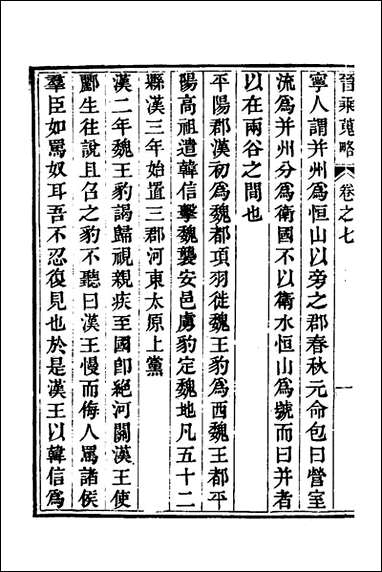 晉乘蒐略 卷之七 一
寧人謂并州爲恒山以旁之郡春秋元命包曰營室
流爲并州分爲衛國不以衛水恒山爲號而曰并者
以在兩谷之間也
平陽郡漢初爲魏都項羽徙魏王豹爲西魏王都平
陽高祖遣韓信擊魏襲安邑虜豹定魏地凡五十二
縣漢三年始置三郡河東太原上黨
漢二年魏王豹謁歸視親疾至國卽絕河關漢王使
酈生往說且召之豹不聽曰漢王慢而侮人罵諸侯
羣臣如罵奴耳吾不忍復見也於是漢王以韓信爲